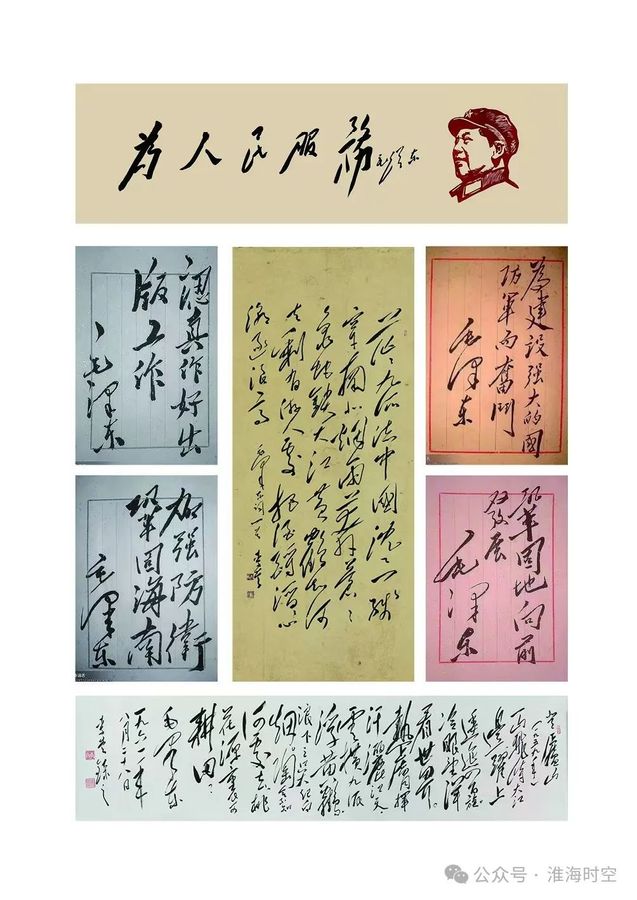 为人民服務 毛泽东
認真作好出
版工作
毛澤东
茫茫九派流中國沈沈一线
穿南北烟雨莽苍苍
龟蛇鎖大江黄鹤知何
去剩有游人處把酒酹滔滔心
潮逐浪高 毛泽东词一首
為建设强大的國
防軍而奮鬥
毛澤东
加强防衛
鞏固海南
毛澤东
鞏固地向前
发展
毛澤东
登廬山
一九五九年
一山飛峙大江
边躍上
葱蘢四百旋
冷眼向洋
看世界
热风吹雨
洒江天
雲横九派
浮黄鹤
浪下三吴起白
烟陶令不知
何处去桃
花源里可
耕田
毛泽东
一九六一年
八月二十八日
公众号·淮海时空